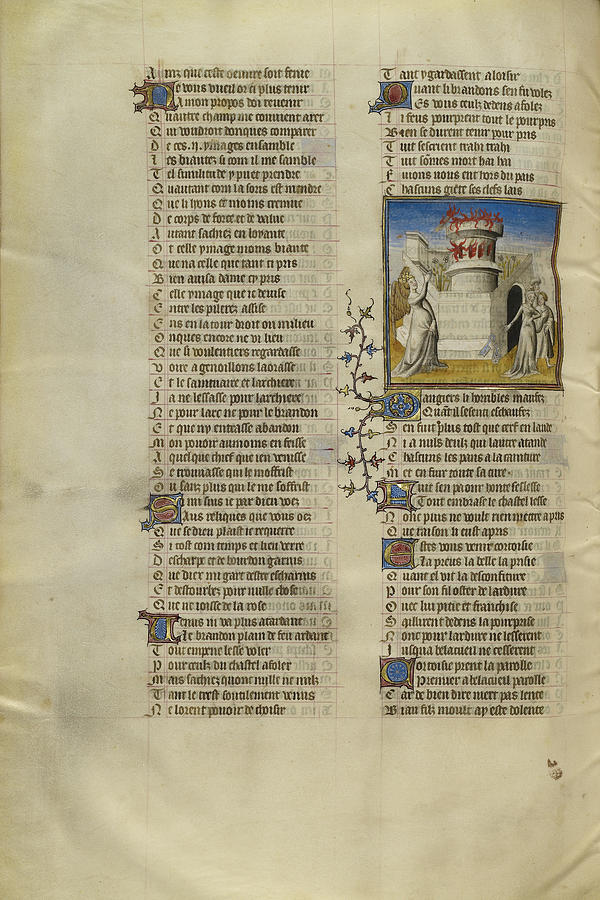 Ainz que ceste oeuure soit finie
Ne vous vueil or ci plus tenir
A mon propos doi reuenir
Quautre champ me conuient arer
Qui voudroit donques comparer
De ces .ij. ymages ensamble
Les biautez si com il me samble
Tel similitude y puet prendre
Quautant com la soris est mendre
Que li lyons et moins cremue
De corps de force et de value
Autant sachez en loyaute
Ot celle ymage moins biaute
Que na celle que tant ci pris
Bien auisa dame cypris
Celle ymage que ie deuise
Entre les pilerez assise
Ens en la tour droit ou milieu
Onques encore ne vi lieu
Que si voulentiers regardasse
Voire a genoillons laorasse
Et le saintuaire et larchiere
Ja ne lessasse pour larchiere
Ne pour larc ne pour le brandon
Et que ny entrasse abandon
Mon pouoir aumoins en feisse
A quelque chief que ien venisse
Se trouuasse qui le moffrist
Ou sanz plus qui le me soffrist
Si mi suis ie par dieu voez
Aus reliques que vous oez
Que se dieu plaist ie requerre
Si tost com temps et lieu verre
Descharpe et de bourdon garnis
Que diex mi gart destre escharnis
Et destourbez pour nulle chose
Que ne ioisse de la rose
Venus ni va plus atardant
Le brandon plain de feu ardant
Tout empene lesse voler
Pour ceulz du chastel afoler
Mais sachiez quonc nulle ne nulz
Tant le trest soutilment venus
Ne lorent pouoir de choisir
Tant y gardassent a loisir
Quant li brandons sen fu volez
Es vous ceulz dedens afolez
Li feus pourprent tout le pourpris
Bien se durent tenir pour pris
Tuit sescrient trahi trahi
Tuit sommes mort hai hai
Fuions nous ent hors du pais
Chascuns giete ses clefs lais
Dangiers li horribles maufez
Quant il se senti eschaufez
Sen fuit plus tost que cerf en lande
Ni a nulz deulz qui lautre atande
Chascuns les pans a la cainture
Met en fuir toute sa cure
Fuit sen paour honte sesleesse
Tout embrase le chastel lesse
Nonc puis ne voult rien metre a pris
Que raison li eust apris
Estes vous venir cortoisie
La preus la belle la prisie
Quant el vit la desconfiture
Pour son filz oster de lardure
Auec lui pitie et franchise
Saillirent dedens la pourprise
Nonc pour lardure ne lesserent
Jusqua belacueil ne cesserent
Cortoisie prent la parolle
Premier a belacueil parolle
Car de bien dire niert pas lente
Biau filz moult ay este dolente